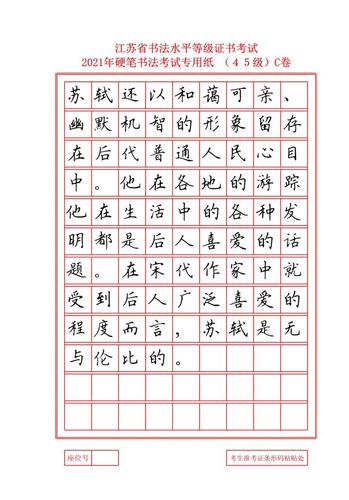 江苏省书法水平等级证书考试
2021年硬笔书法考试专用纸 （45级）C卷
苏轼还以和蔼可亲、
幽默机智的形象留存
在后代普通人民心目
中。他在各地的游踪
他在生活中的各种发
明都是后人喜爱的话
题。在宋代作家中就
受到后人广泛喜爱的
程度而言，苏轼是无
与伦比的。
座位号
考生准考证条形码粘贴处